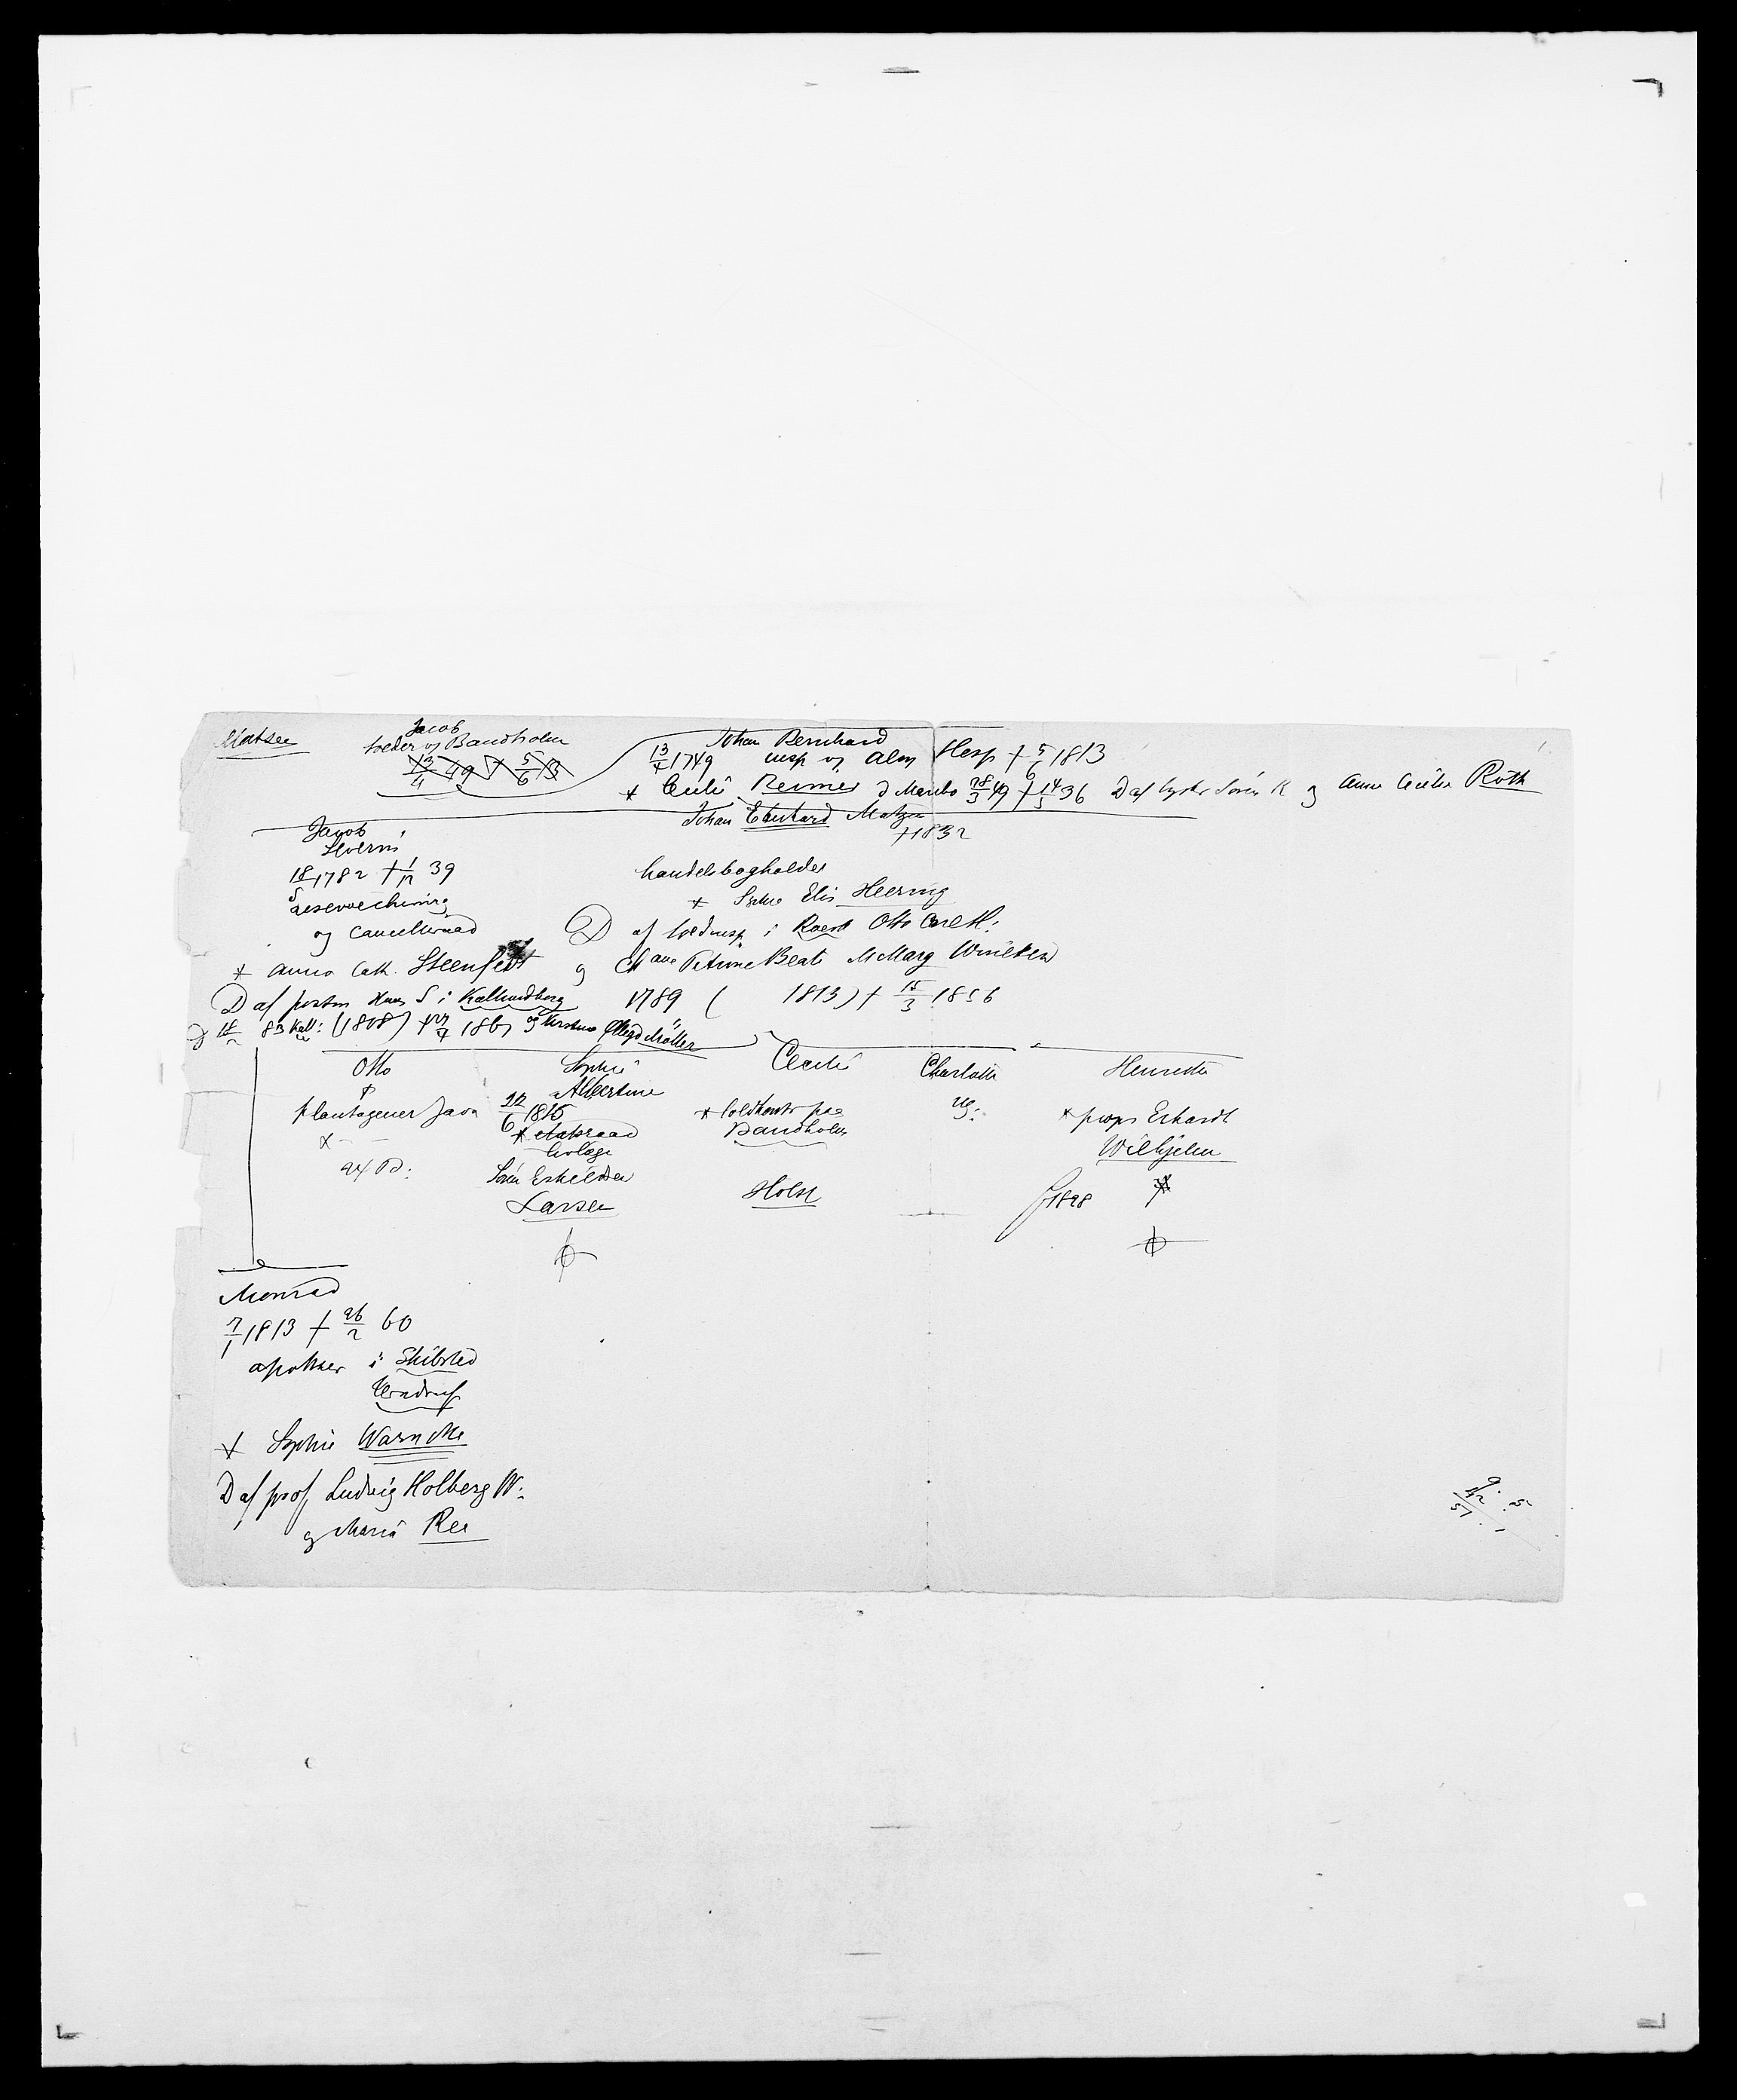 Matsen
Jacob
tolder og Bandholm
13/4 49 † 5/6 13
Johan Bernhard
13/4 1749 insp og Alm Hosp † 5/6 1813
* Cecilie Reimer d Maribo 28/3 49 † 14/5 36 D af Søren R og Anne Cecilie Roth
Johan Eberhard Matzen
† 1832
Jacob
Severin
18/5 1782 † 1/12 39
og Cancelliraad
* Anna Cath. Steenfeldt
D af postm Hans S i Kallundborg
83 Kall: (1808) † 1867 og Kirstine Møller
handelsbogholder
* Sophie Elis Heering
D af toldinsp i Otto Carl H:
og Chane Petrine Beate M Marg Wineken
1789 ( 1813) † 15/3 1856
Otto
plantageeier Java
Sophie
Albertine
22/6 1815
* etatsraad
livlæge
Søren Eskildsen
Larsen
Cecilie
* toldkontr paa
Bandholm
Holst
Charlotte
ug:
Henriette
* propr Erhardt
Wilhjelm
f 1828
Monrad
7/1 1813 † 26/2 60
apotheker i Skibsted
Terndrup
* Sophie Warncke
D af prof Ludvig Holberg W:
og Marie Ree